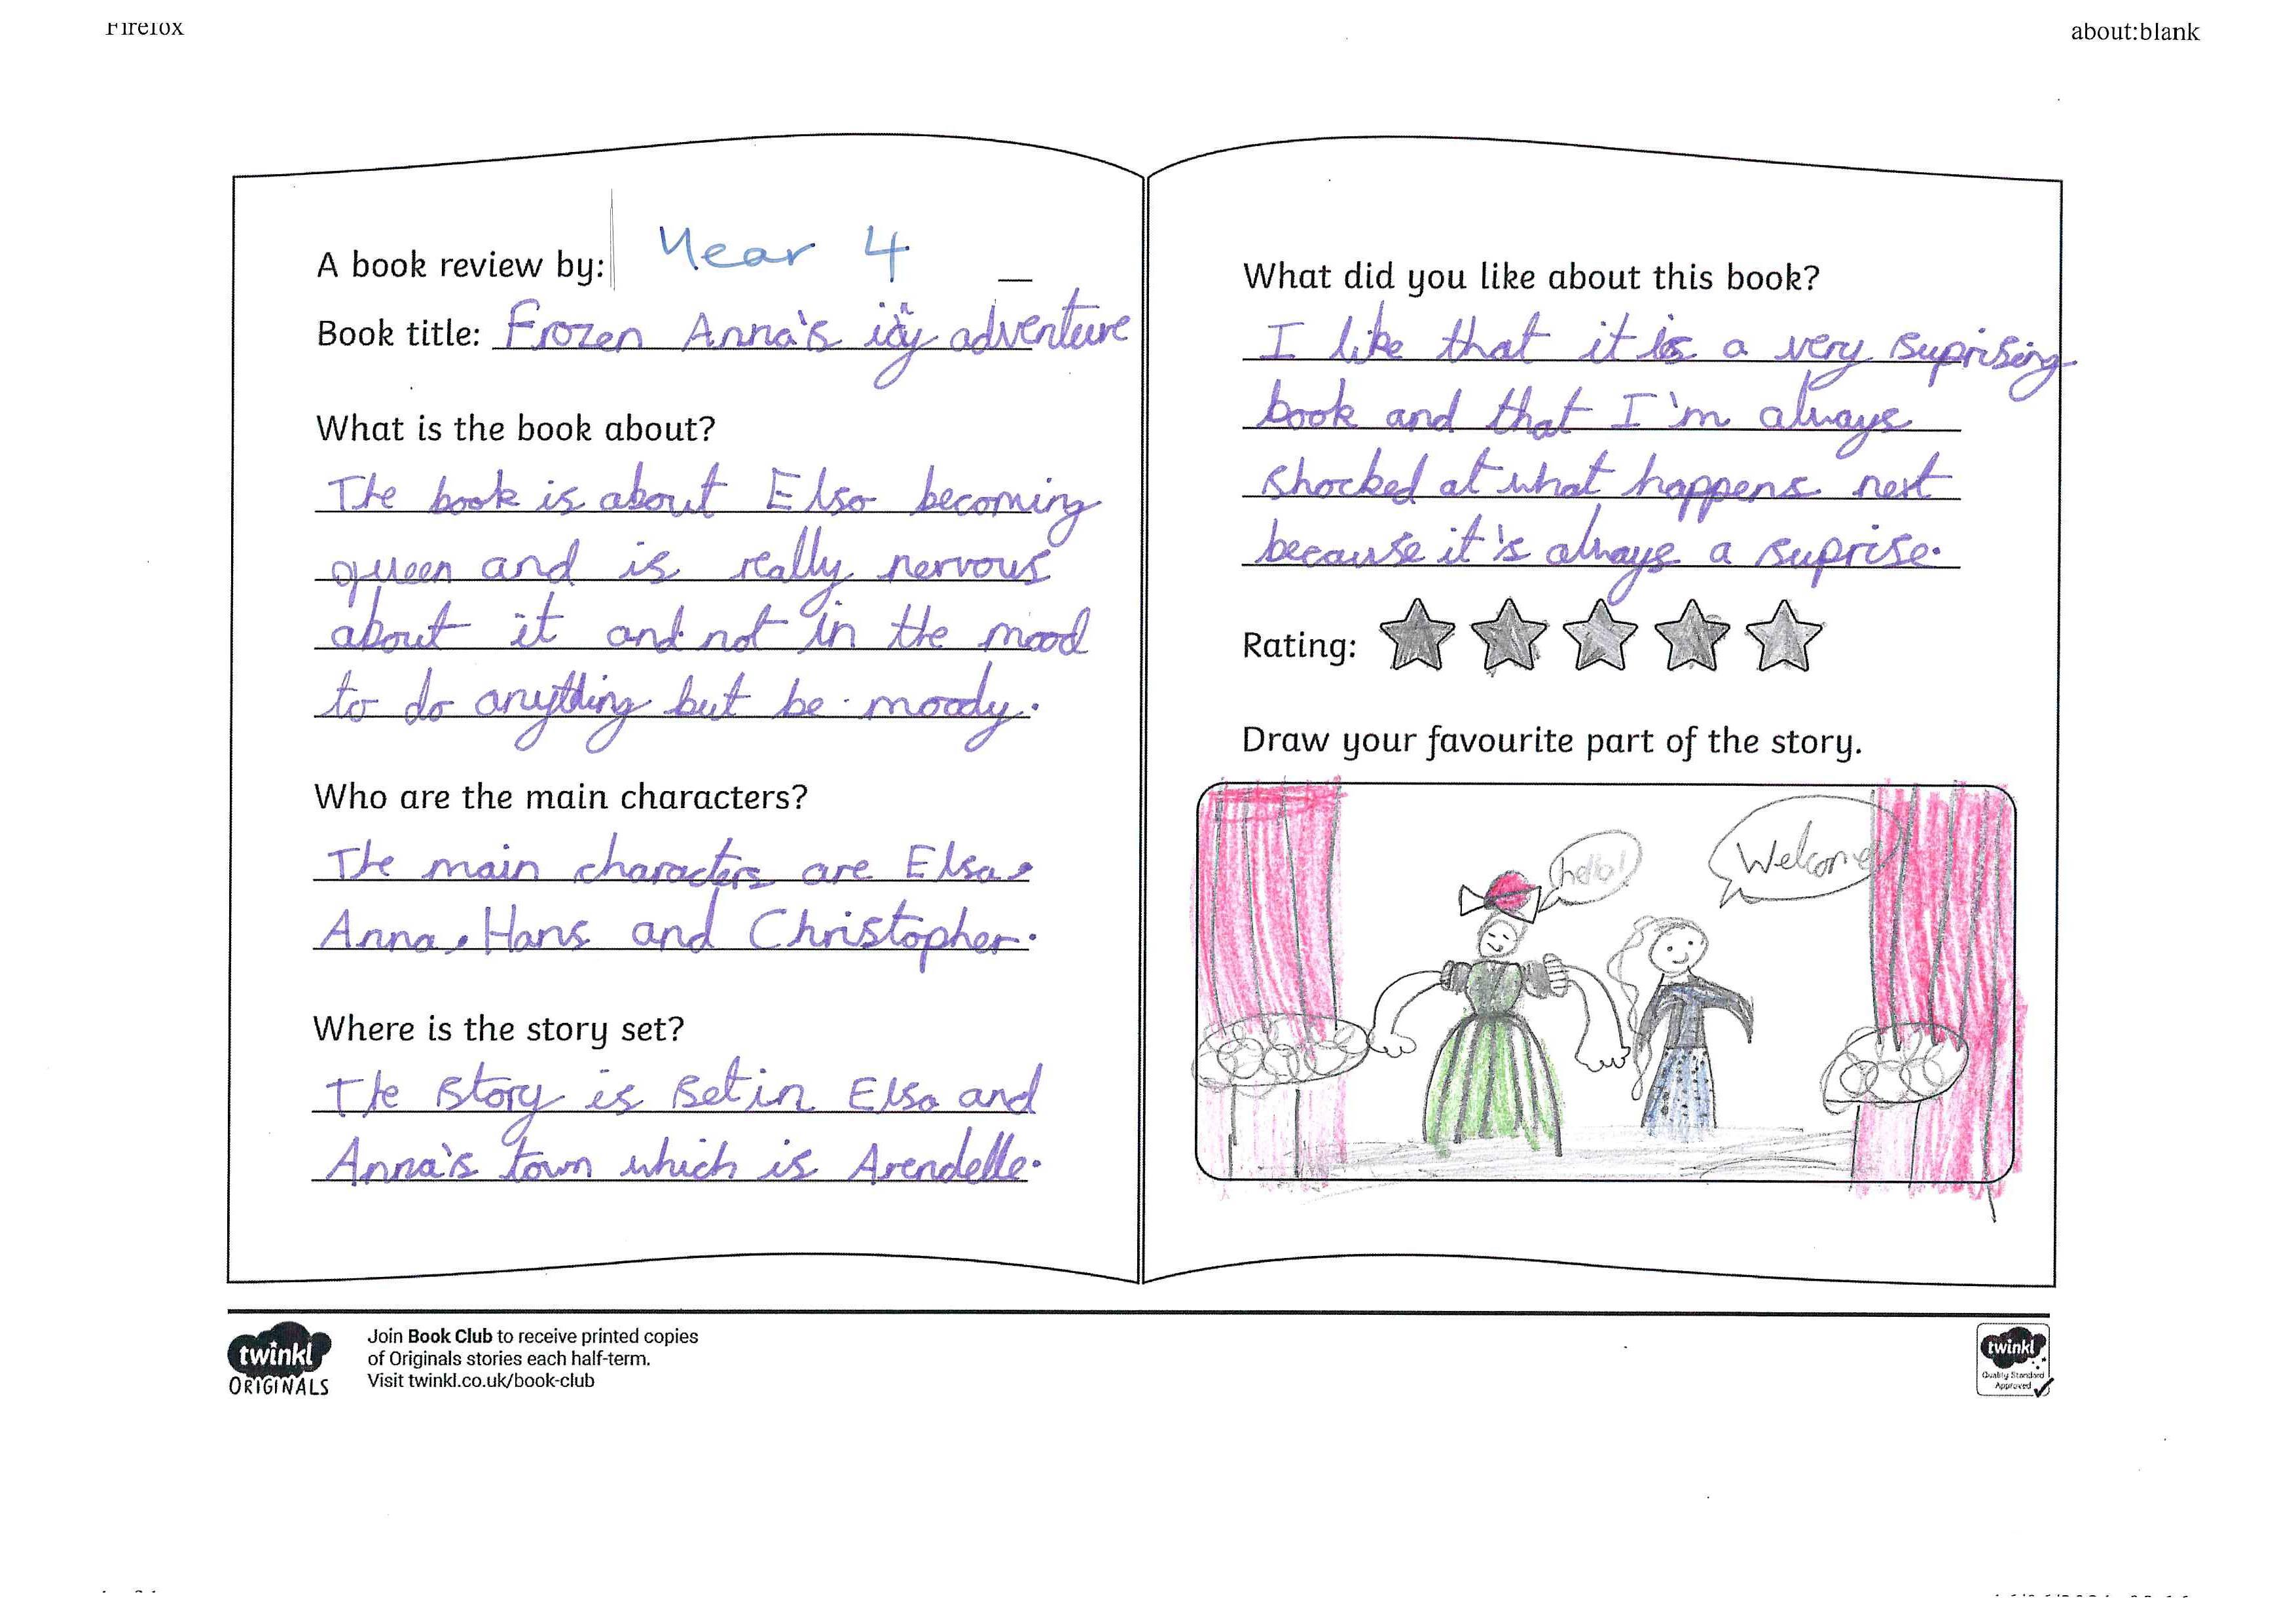 Firefox
about:blank
A book review by: Year 4
Book title: Frozen Anna's icy adventure
What is the book about?
The book is about Elsa becoming
queen and is really nervous
about it and not in the mood
to do anything but be moody.
Who are the main characters?
The main characters are Elsa,
Anna, Hans and Christopher.
Where is the story set?
The story is set in Elsa and
Anna's town which is Arendelle.
What did you like about this book?
I like that it is a very suprising
book and that I'm always
shocked at what happens next
because it's always a suprise.
Rating:
Draw your favourite part of the story.
hello!
Welcome
twinkl
ORIGINALS
Join Book Club to receive printed copies
of Originals stories each half-term.
Visit twinkl.co.uk/book-club
twinkl
Quality Standard
Approved